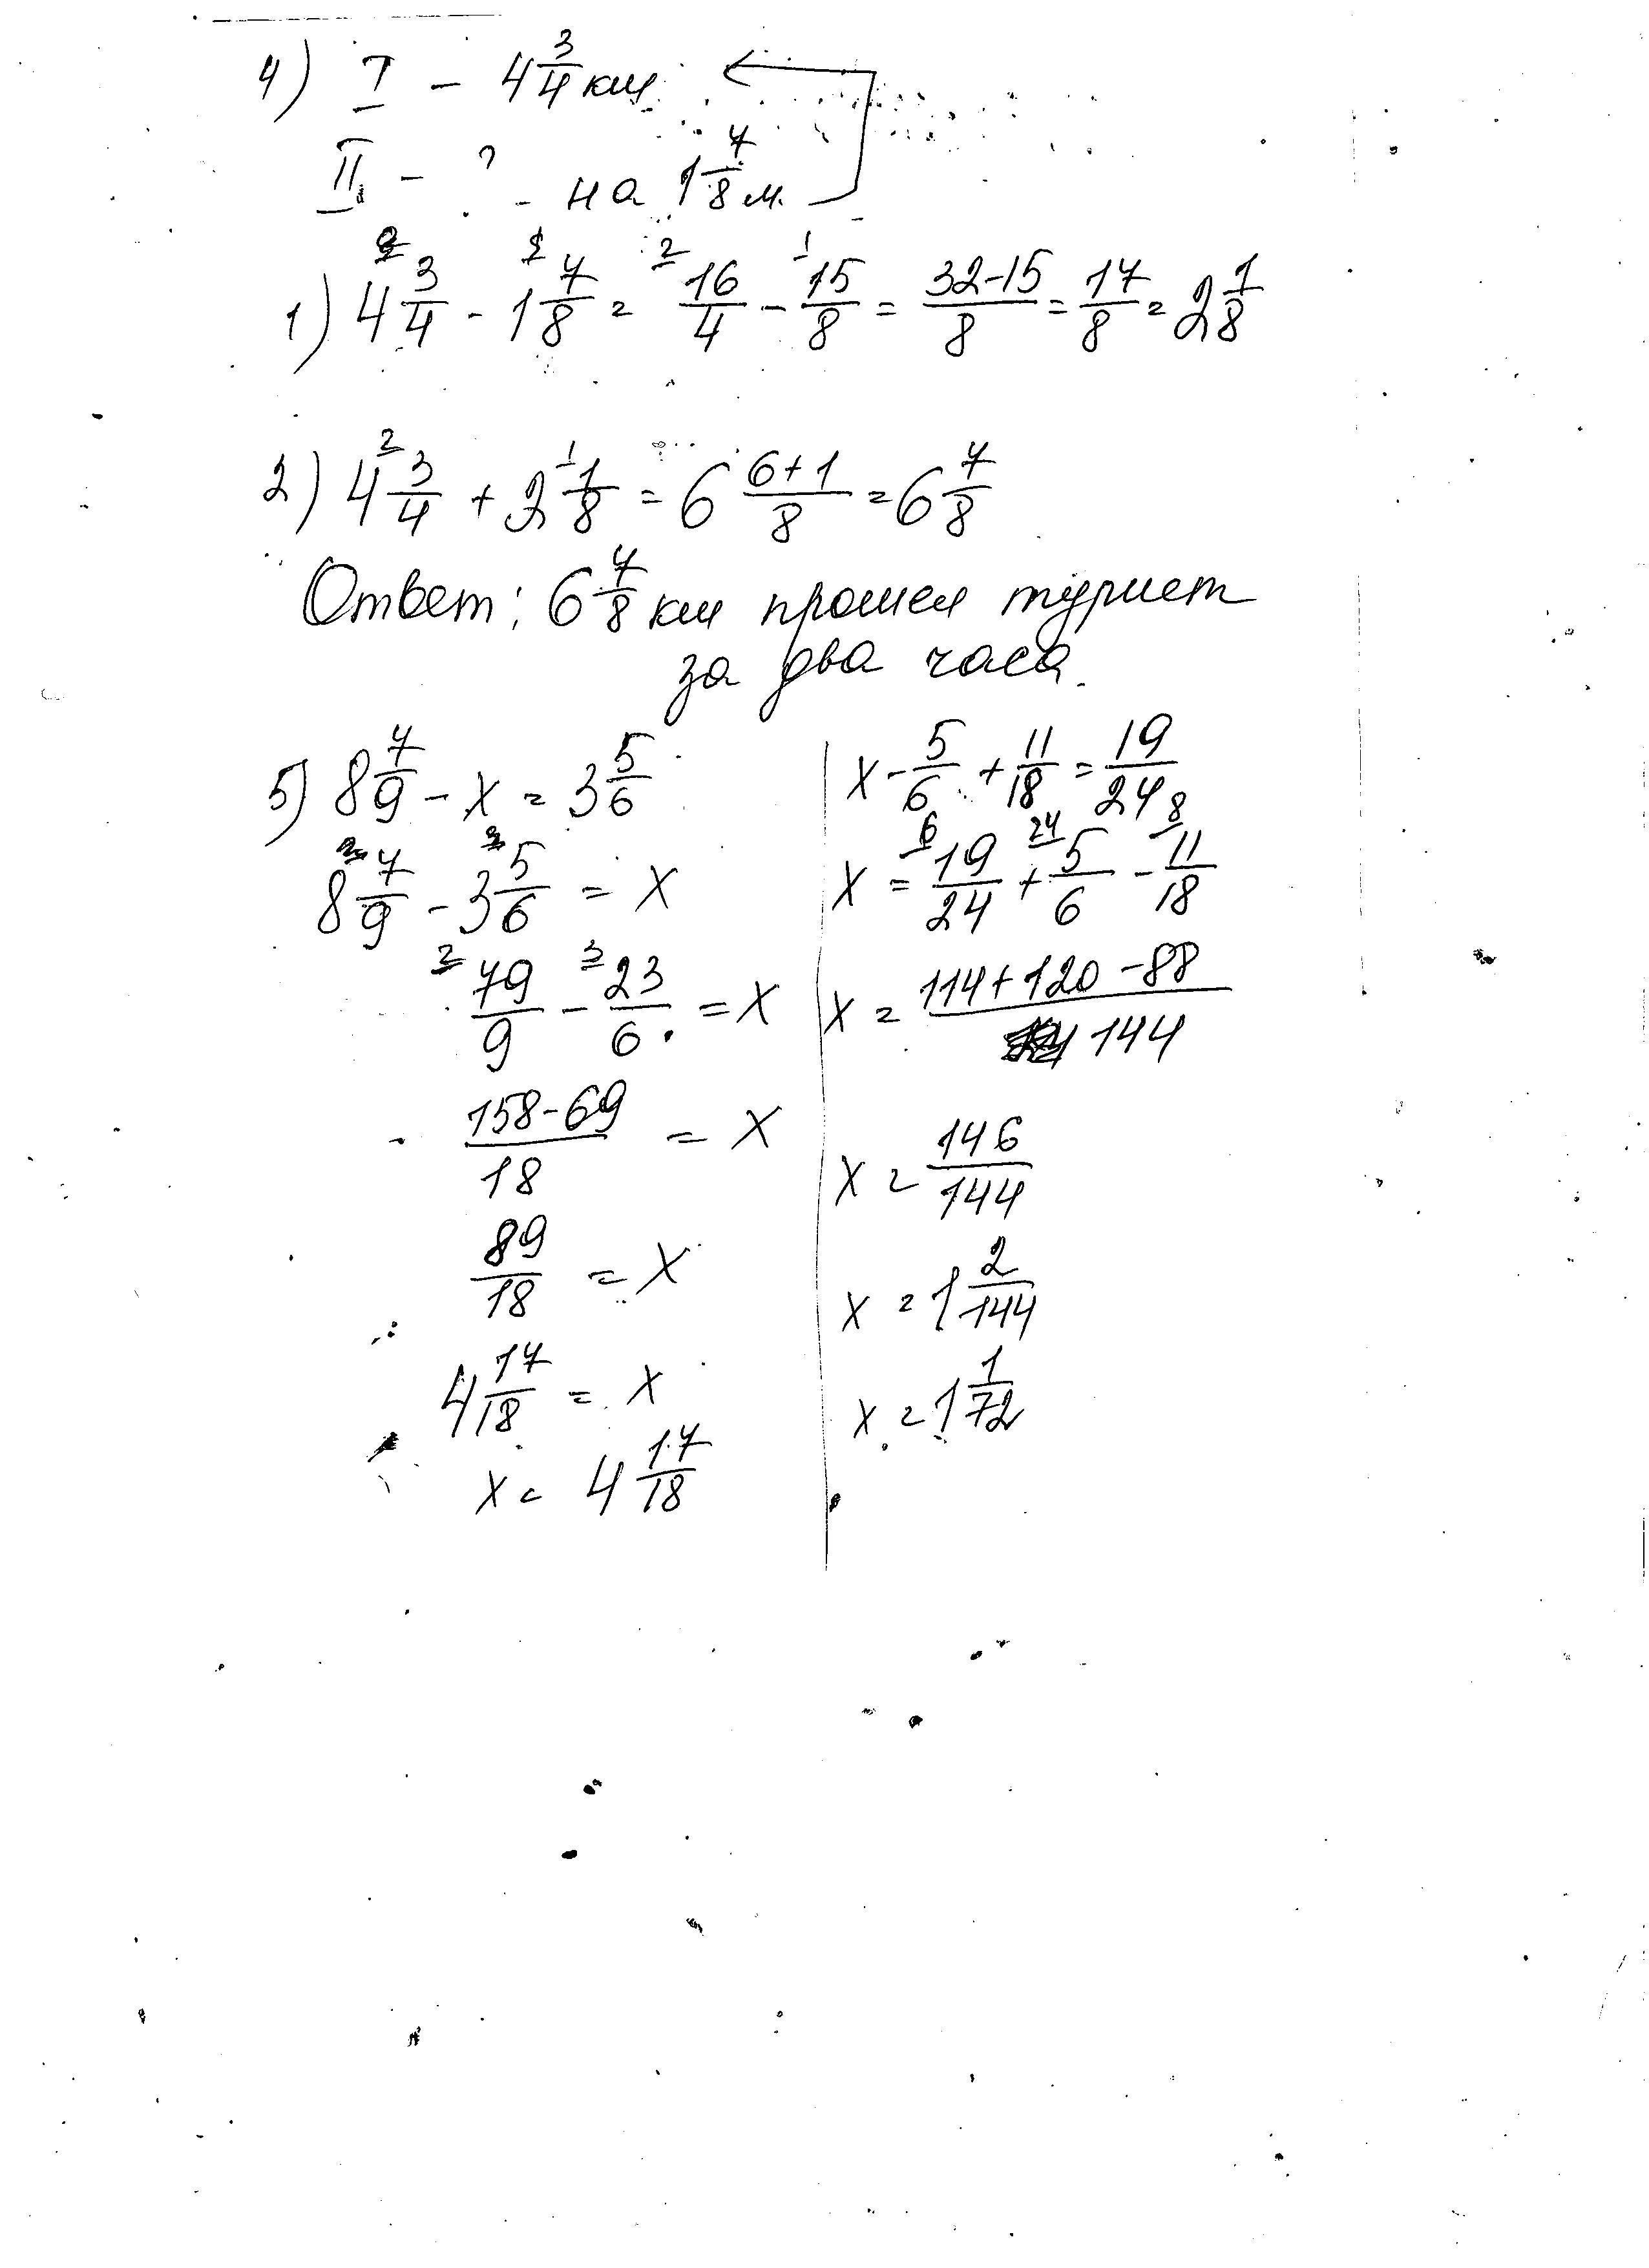 4) I - 4 3/4 км
II - ? - на 1 7/8 м.
1) 4 3/4 - 1 7/8 = 16/4 - 15/8 = (32-15)/8 = 17/8 = 2 1/8
2) 4 3/4 + 2 1/8 = 6 (6+1)/8 = 6 7/8
Ответ: 6 7/8 км прошел турист
за два часа.
5) 8 7/9 - x = 3 5/6
8 7/9 - 3 5/6 = x
79/9 - 23/6 = x
(158-69)/18 = x
89/18 = x
4 17/18 = x
x = 4 17/18
x - 5/6 + 11/18 = 19/24
x = 19/24 + 5/6 - 11/18
x = (114+120-88)/144
x = 146/144
x = 1 2/144
x = 1 1/72